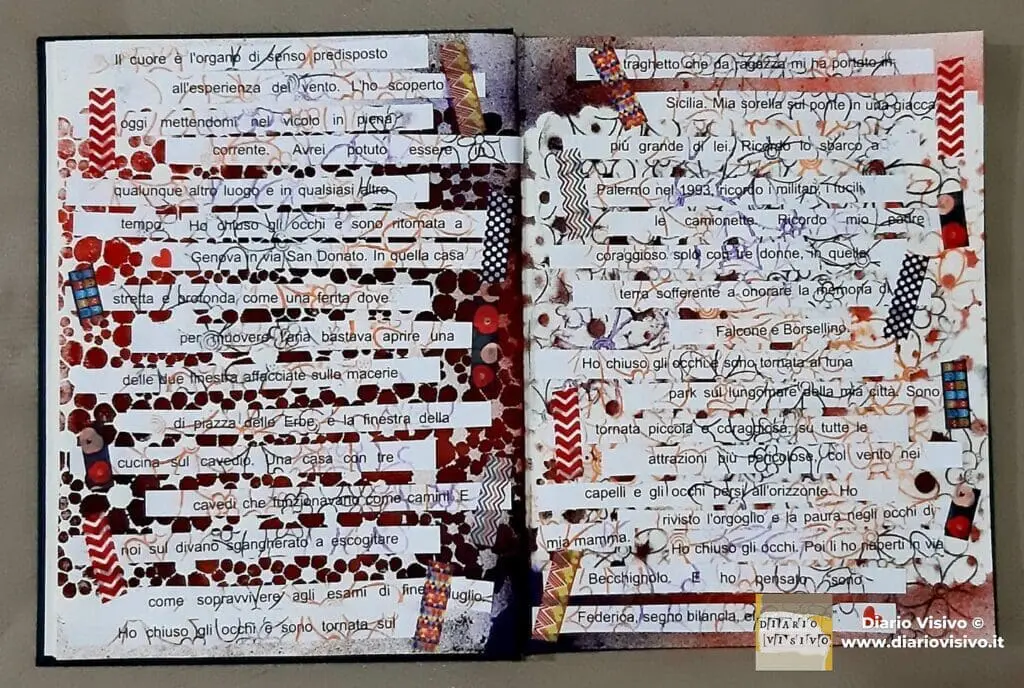 Il cuore è l'organo di senso predisposto
all'esperienza del vento. L'ho scoperto
oggi mettendomi nel vicolo in piena
corrente. Avrei potuto essere in
qualunque altro luogo e in qualsiasi altro
tempo. Ho chiuso gli occhi e sono ritornata a
Genova in via San Donato. In quella casa
stretta e profonda come una ferita dove
per muovere l'aria bastava aprire una
delle due finestra affacciate sulle macerie
di piazza delle Erbe, e la finestra della
cucina sul cavedio. Una casa con tre
cavedi che funzionavano come camini. E
noi sul divano sgangherato a escogitare
come sopravvivere agli esami di fine luglio.
Ho chiuso gli occhi e sono tornata sul
traghetto che da ragazza mi ha portato in
Sicilia. Mia sorella sul ponte in una giacca
più grande di lei. Ricordo lo sbarco a
Palermo nel 1993, ricordo i militari, i fucili,
le camionette. Ricordo mio padre
coraggioso solo con tre donne, in quella
terra sofferente a onorare la memoria di
Falcone e Borsellino.
Ho chiuso gli occhi e sono tornata al luna
park sul lungomare della mia città. Sono
tornata piccola e coraggiosa, su tutte le
attrazioni più pericolose, col vento nei
capelli e gli occhi persi all'orizzonte. Ho
rivisto l'orgoglio e la paura negli occhi di
mia mamma. Ho chiuso gli occhi. Poi li ho riaperti in via
Becchignolo. E ho pensato sono
Federica, segno bilancia,
DIARIO
VISIVO
Diario Visivo ©
www.diariovisivo.it